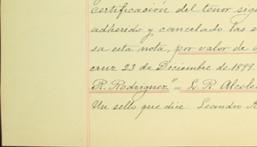 Certificación del tenor sig
adherido y cancelado las s
sa esta nota, por valor de
cruz 23 de Diciembre de 1899.
R. Rodriguez" = L. R. Alcole
Un sello que dice Leandro